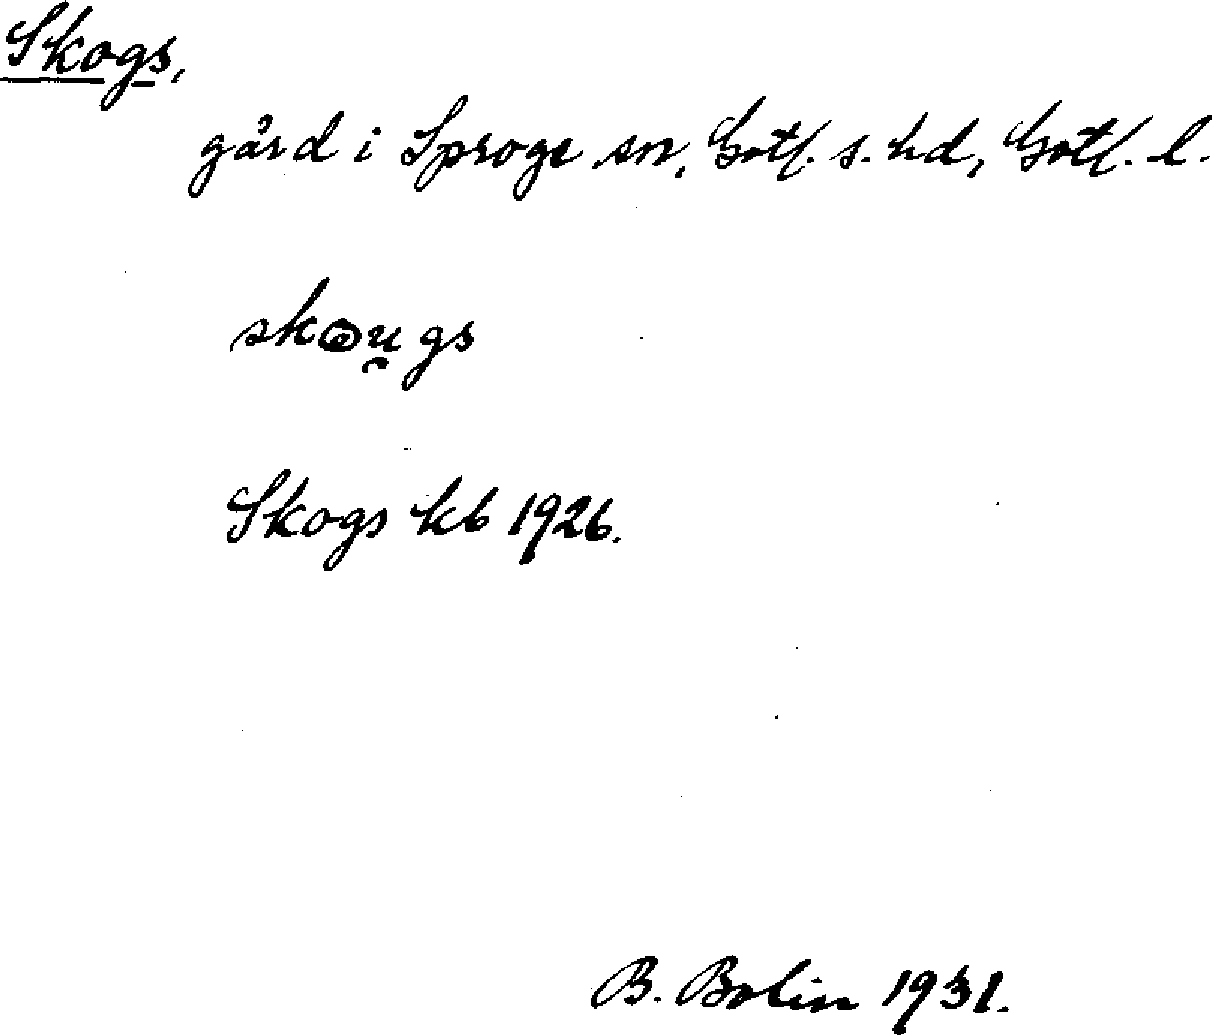 Skogs,
gård i Sproge sn, Gotl. s. hd, Gotl. l.
skωu̯gs
Skogs kb 1926.
B. Bolin 1931.